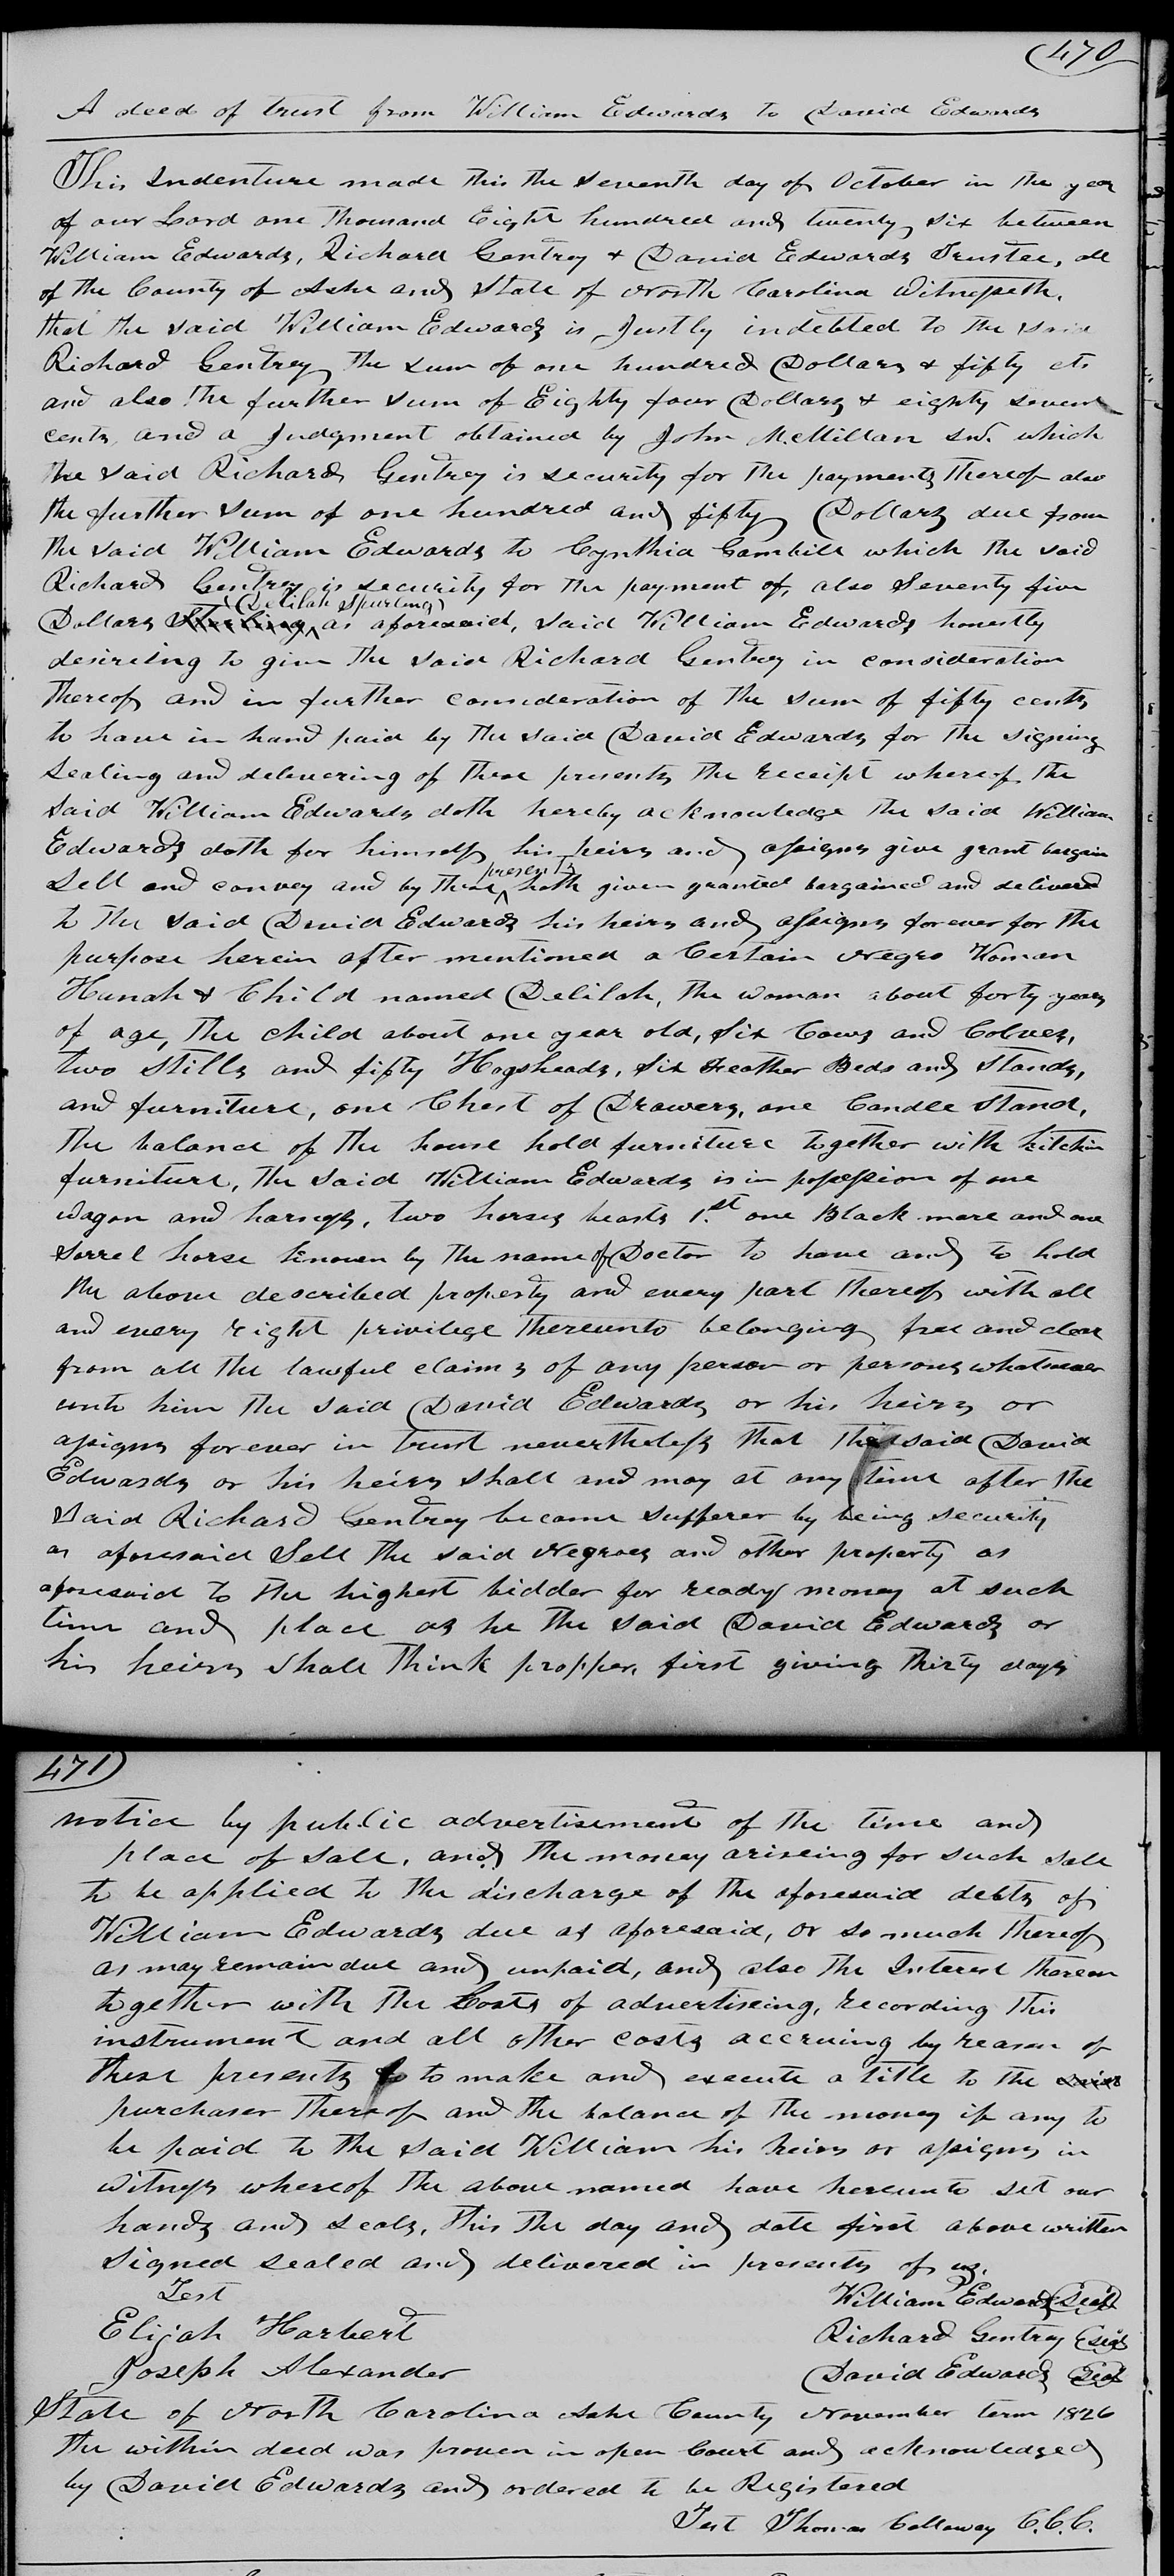 470
A deed of trust from William Edwards to David Edwards
This Indenture made this the seventh day of October in the year
of our Lord one thousand Eight hundred and twenty six between
William Edwards, Richard Gentrey & David Edwards Trustee, all
of the County of Ashe and State of North Carolina Witnesseth,
that the said William Edwards is Justly indebted to the said
Richard Gentrey the sum of one hundred Dollars & fifty cts
and also the further sum of Eighty four Dollars & eighty seven
cents, and a Judgment obtained by John McMillan which
the said Richard Gentrey is security for the payments thereof also
the further sum of one hundred and fifty Dollars due from
the said William Edwards to Cynthia Gambill which the said
Richard Gentrey is security for the payment of, also Seventy five
(Delilah Spurling)
Dollars Sterling as aforesaid, said William Edwards honestly
desireing to give the said Richard Gentrey in consideration
thereof and in further consideration of the sum of fifty cents
to have in hand paid by the said David Edwards for the signing
Sealing and delivering of these presents the receipt whereof the
said William Edwards doth hereby acknowledge the said William
Edwards doth for himself his heirs and assigns give grant bargain
presents
Sell and convey and by these hath given granted bargained and delivered
to the said David Edwards his heirs and assigns forever for the
purpose herein after mentioned a Certain Negro Woman
Hunah & Child named Delilah, the woman about forty years
of age, the child about one year old, Six Cows and Calves,
two Stills and fifty Hogsheads, Six Feather Beds and Stands,
and furniture, one Chest of Drawers, one Candle Stand,
the balance of the house hold furniture together with kitchin
furniture, the said William Edwards is in possession of one
wagon and harness, two horses beasts 1st one Black mare and one
Sorrel horse known by the name of Doctor to have and to hold
the above described property and every part thereof with all
and every right privilege thereunto belonging free and clear
from all the lawful claims of any person or persons whatsoever
unto him the said David Edwards or his heirs or
assigns forever in trust nevertheless that the said David
Edwards or his heirs shall and may at any time after the
Said Richard Gentrey become sufferer by being security
as aforesaid Sell the said Negroes and other property as
aforesaid to the highest bidder for ready money at such
time and place as he the said David Edwards or
his heirs shall think propper, first giving thirty days
471
notice by public advertisement of the time and
place of sale, and the money ariseing for such sale
to be applied to the discharge of the aforesaid debts of
William Edwards due as aforesaid, or so much thereof
as may remain due and unpaid, and also the Interest thereon
together with the Costs of advertiseing, recording this
instrument and all other costs accruing by reason of
these presents & to make and execute a title to the said
purchaser thereof and the balance of the money if any to
be paid to the said William his heirs or assigns in
Witness whereof the above named have hereunto set our
hands and seals, this the day and date first above written
Signed sealed and delivered in presents of us.
Test
William Edwards Seal
Elijah Harbert
Richard Gentrey Seal
Joseph Alexander
David Edwards Seal
State of North Carolina Ashe County November term 1826
the within deed was proven in open Court and acknowledged
by David Edwards and ordered to be Registered
Test Thomas Calloway C.C.C.